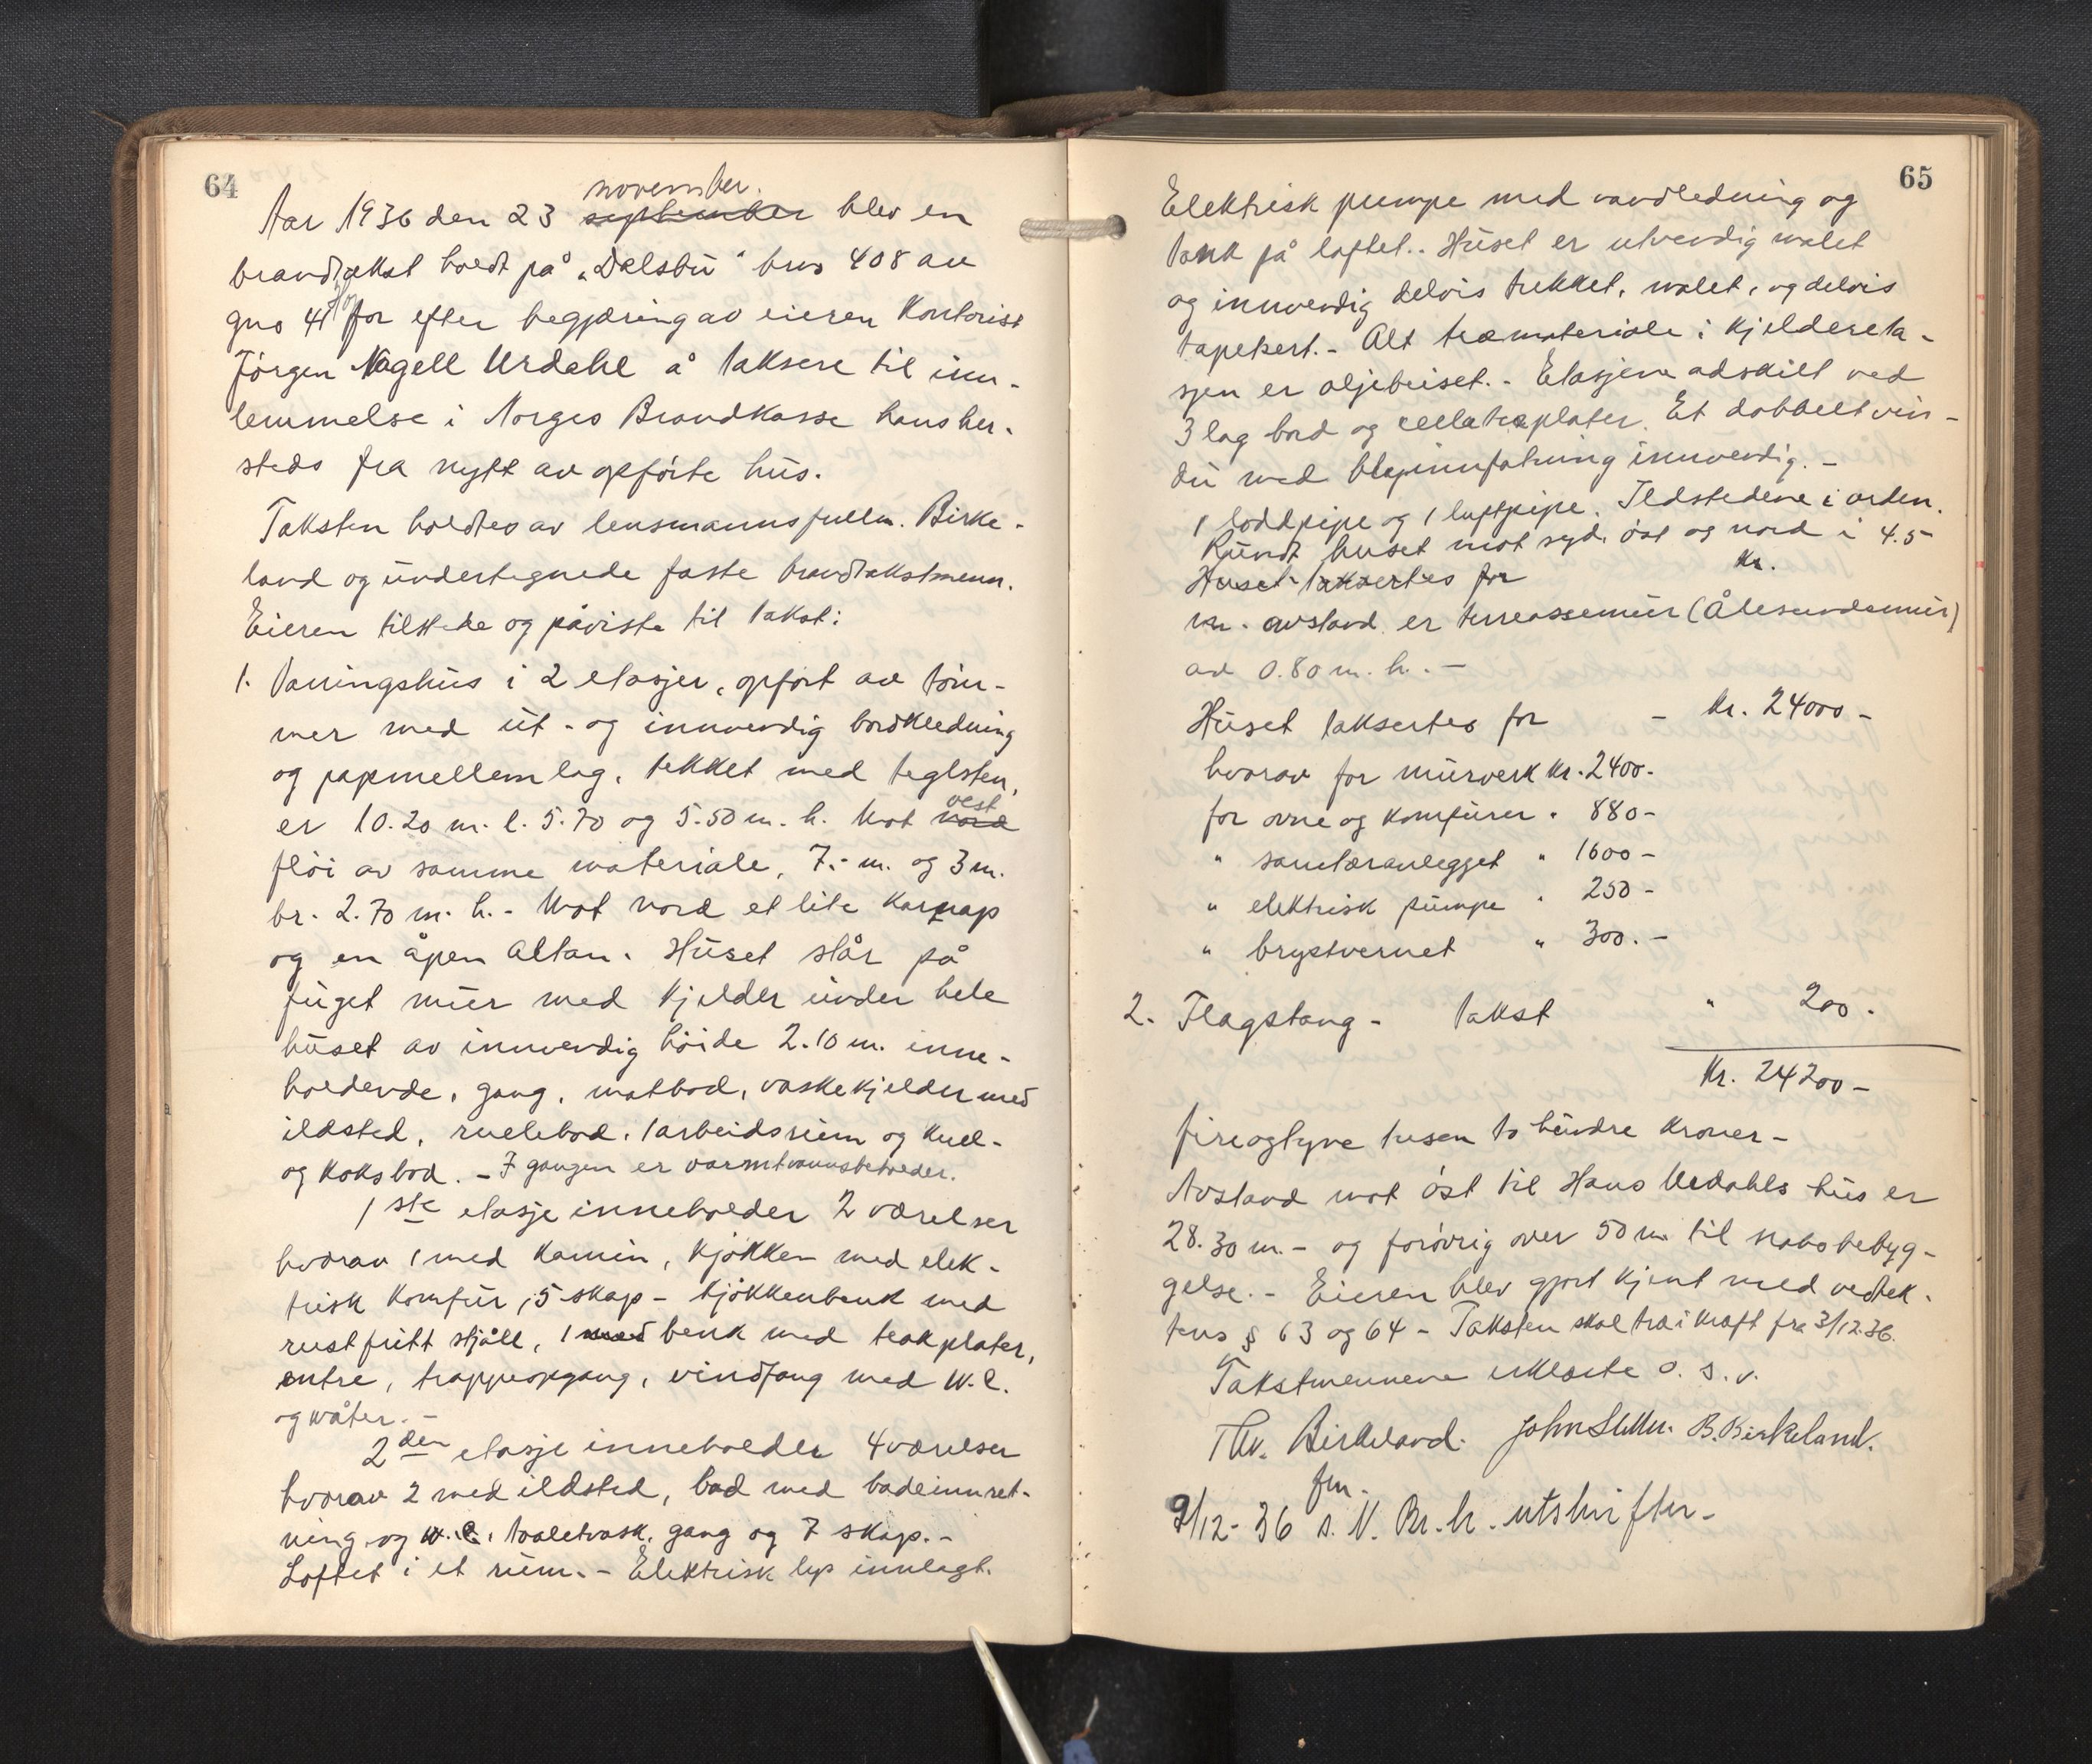 64
november.
Aar 1936 den 23 september blev en
brandtakst holdt på "Dalsbu" bno 408 av
gno 41 for efter begjæring av eieren Kontorist
Jörgen Nagell Urdahl å taksere til inn-
lemmelse i Norges Brandkasse hans her-
steds fra nytt av opförte hus.
Taksten holdtes av lensmannsfullm. Birke-
land og undertegnede faste brandtakstmenn.
Eieren tilstede og påviste til takst:
1. Vaaningshus i 2 etasjer, opfört av töm-
mer med ut- og innvendig bordkledning
og papmellemlag, tekket med teglsten,
er 10.20 m. l. 5.70 og 5.50 m. h. Mot nord vest
flöi av samme materiale, 7.- m. og 3 m.
br. 2.70 m. h. - Mot nord et lite karnap
og en åpen altan. Huset står på
fuget mur med kjelder under hele
huset av innvendig höide 2.10 m. inne-
holdende, gang, matbod, vaskekjelder med
ildsted, rullebod, 1 arbeidsrum og kull-
og koksbod. - I gangen er varmtvannsbeholder.
1ste etasje inneholder 2 værelser
hvorav 1 med kamin, kjökken med elek-
trisk komfur, 5 skap - kjökkenbenk med
rustfritt stjåll, 1 med benk med teakplater,
entre, trappeopgang, vindfang med W.C.
og water. -
2den etasje inneholder 4 værelser
hvorav 2 med ildsted, bad med badeinnret-
ning og w.c. toaletvask, gang og 7 skap. -
Loftet i et rum. - Elektrisk lys innlagt.
65
Elektrisk pumpe med vandledning og
tank på loftet. - Huset er utvendig malet
og innvendig delvis trekket, malet, og delvis
tapetsert. - Alt træmateriale i kjeldereta-
sjen er oljebeiset. - Etasjene adskilt ved
3 lag bord og cellotexplater. Et dobbelt vin-
du med blyinnfatning innvendig. -
1 loddpipe og 1 luftpipe. Ildstedene i orden.
Rundt huset mot syd, öst og nord i 4.5
Huset taksertes for kr.
m. avstand er terrassemur (Ålesundsmur)
av 0.80 m. h. -
Huset taksertes for - kr. 24000 -
hvorav for murverk kr. 2400.-
for ovne og komfurer " 880 -
" sanitæranlegget " 1600 -
" elektrisk pumpe " 250 -
" brystvernet " 300. -
2. Flagstang - takst " 200.
Kr. 24200 -
fireogtyve tusen to hundre kroner -
Avstand mot öst til Hans Urdahls hus er
28.30 m. - og forövrig over 50 m. til nabobebyg-
gelse. - Eieren blev gjort kjent med vedtek-
tens § 63 og 64 - Taksten skal træ i kraft fra 3/12.36.
Takstmennene erklærte o. s. v.
Thv. Birkeland. John B. Birkeland.
fm.
9/12-36 s. N. Br. k. utskrifter -